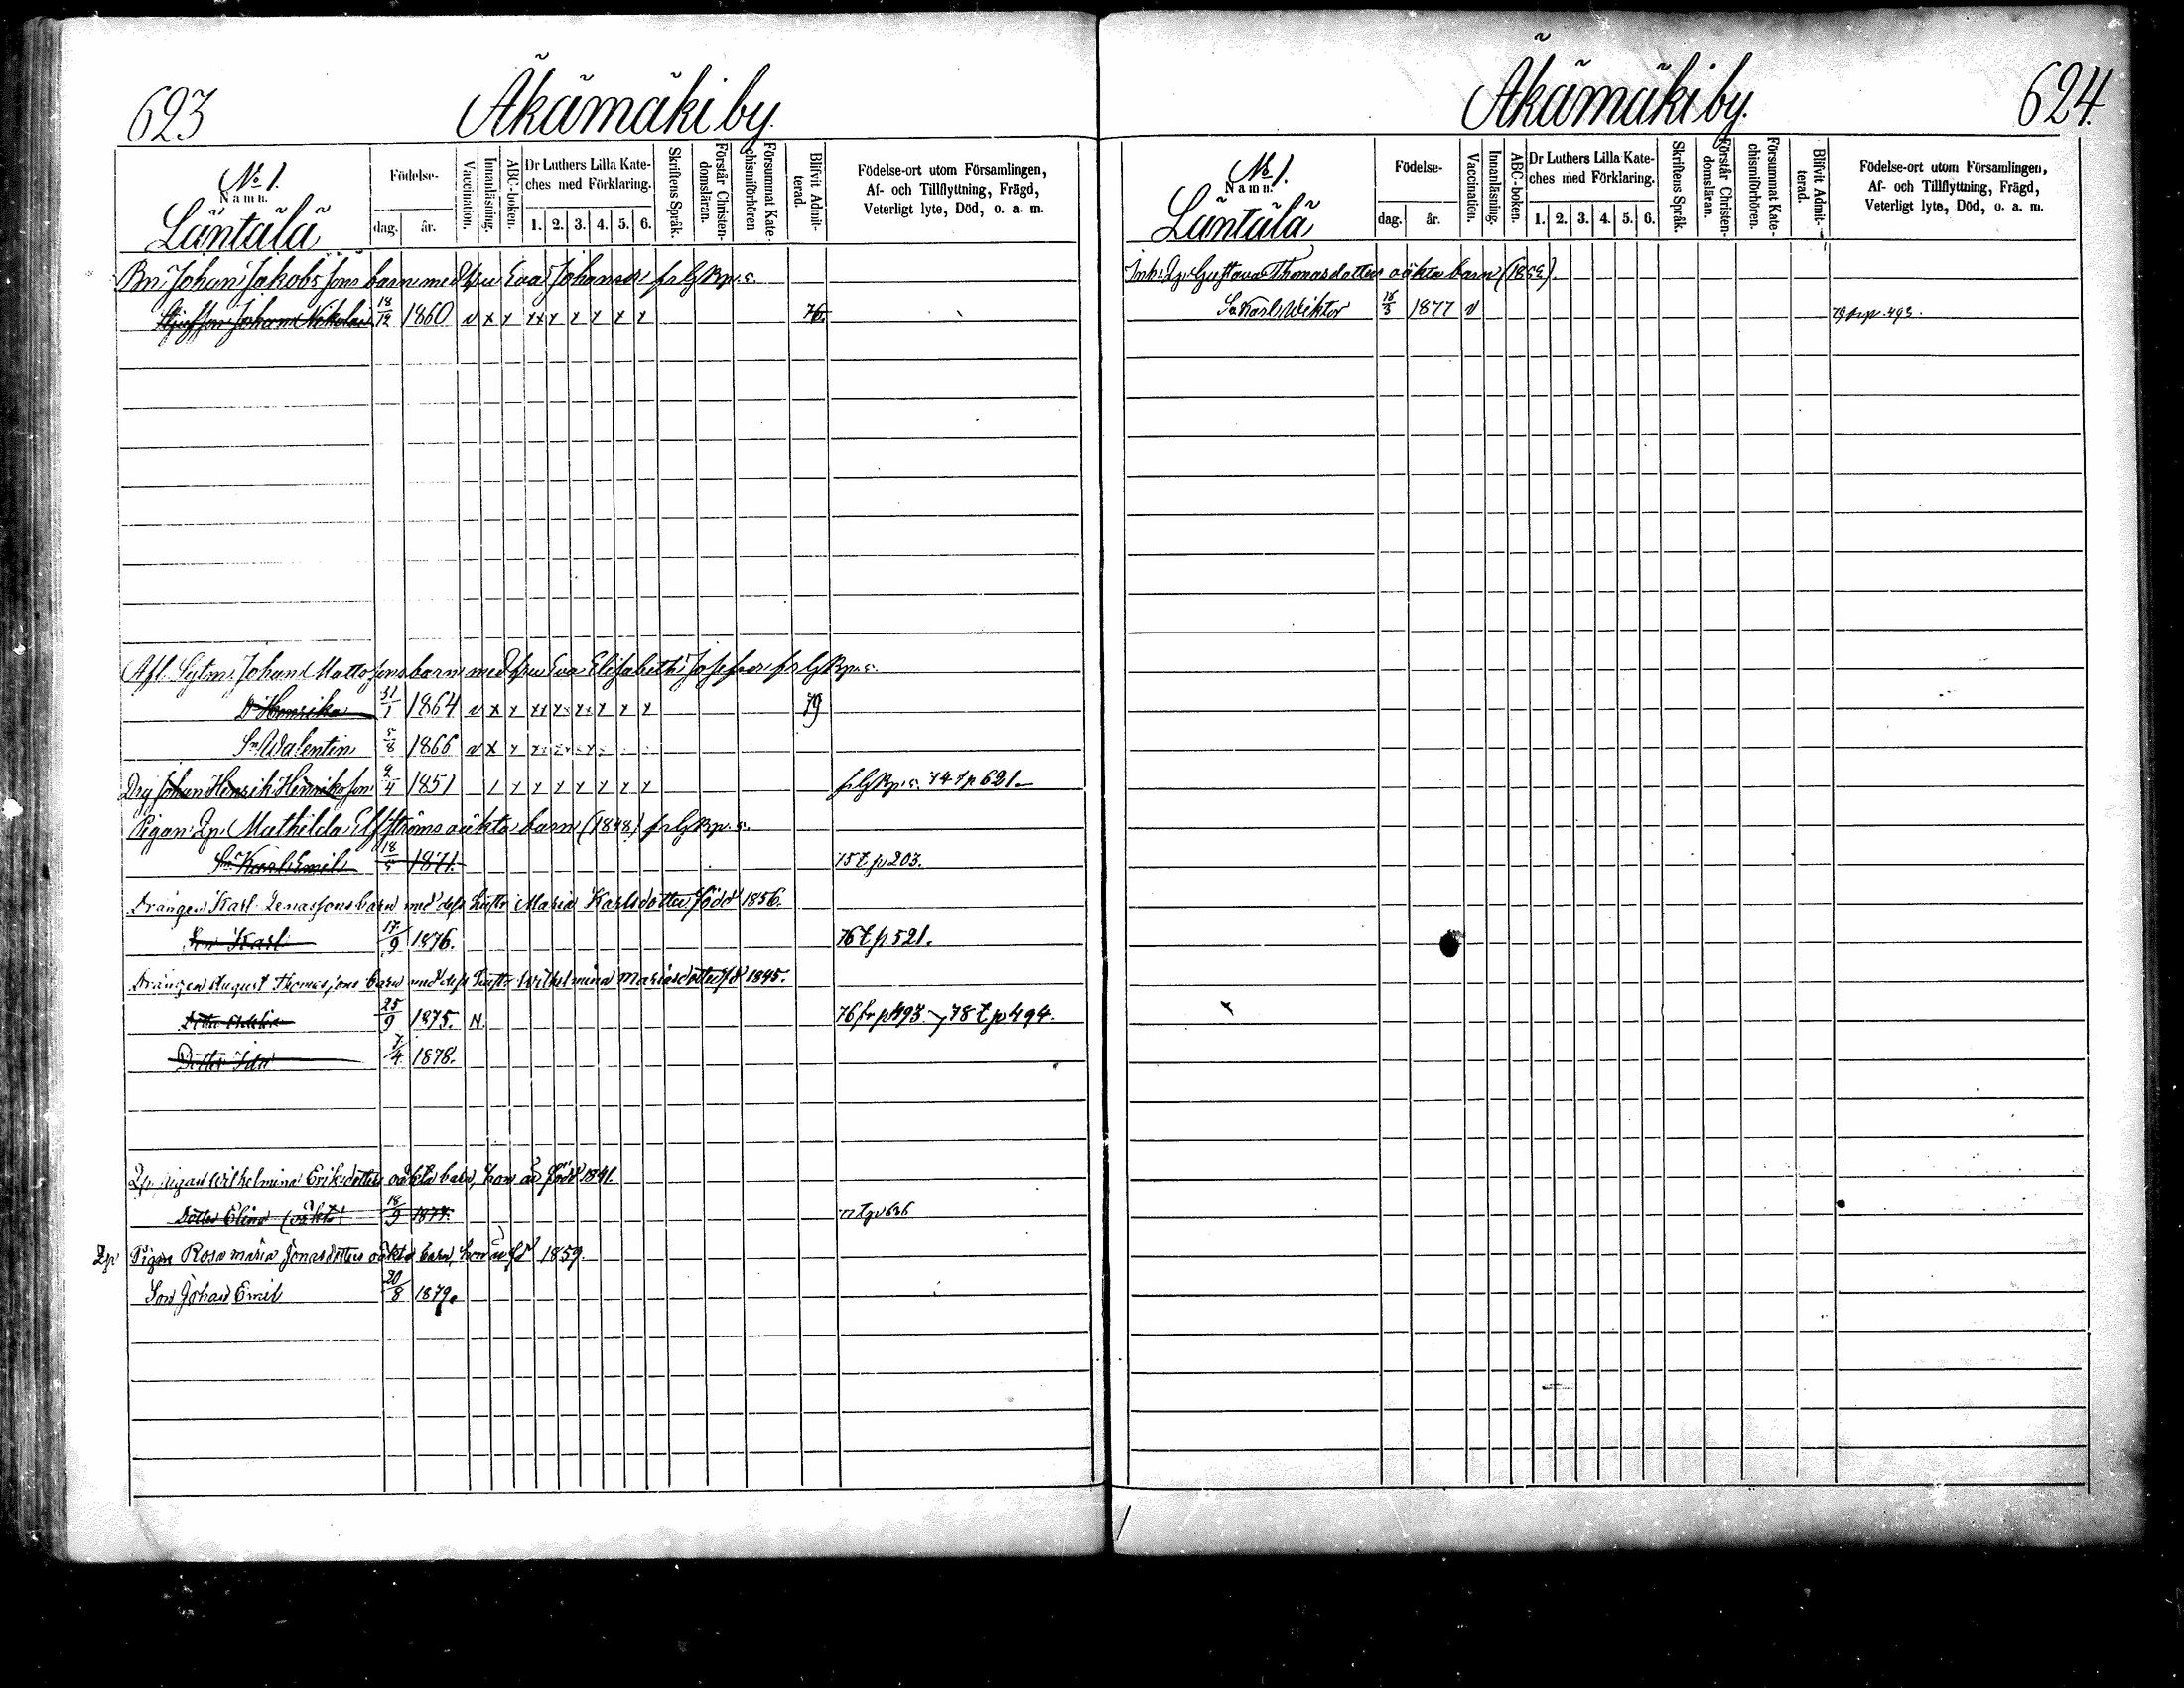 623 Äkämäki by.
No 1. Namn. Läntälä
Födelse- dag. år.
Vaccination.
Innanläsning.
ABC-boken.
Dr Luthers Lilla Kateches med Förklaring. 1. 2. 3. 4. 5. 6.
Skriftens Språk.
Förstår Christendomsläran.
Försummat Katechismiförhören
Blifvit Admitterad.
Födelse-ort utom Församlingen, Af- och Tillflyttning, Frägd, Veterligt lyte, Död, o. a. m.
Bn Johan Jakobssons barn med hu Eva Johansdr
Styfson Johan Nikolai 18/12 1860 v x x xx x x x x x 76.
Afl. Johan Mattssons barn med hu Eva Elisabeth Josefsdr
Dr Henrika 31/1 1864 v x x xx x x x x x 79
Sn Walentin 5/8 1866 v x x
Drg Johan Henrik Henriksson 9/4 1851 x x x x x x x x 74 fr p 621
Pigan Lp. Mathilda Elfströms oäkta barn (1848)
Sn Karl Emil 18/5 1871. 75 t p 203.
Drängen Karl Jonassons barn med dess hustr Maria Karlsdotter född 1856.
Son Karl 17/9 1876. 76 t p 521.
Drängen August Thomassons barn med dess hustr Wilhelmina Mariasdotter fd 1845.
25/9 1875. 76 fr p 493. 78 t p 494.
Dotter Ida 7/4 1878.
Lp. pigan Wilhelmina Eriksdotters oäkta barn, hon är född 1841.
Dotter Elina (oäkta) 18/9 1877. 77 t p 636
Lp Pigan Rosa Maria Jonasdotters oäkta barn, hon är fd 1859.
Son Johan Emil 20/8 1879.
Äkämäki by. 624.
No 1. Namn. Läntälä
Födelse- dag. år.
Vaccination.
Innanläsning.
ABC-boken.
Dr Luthers Lilla Kateches med Förklaring. 1. 2. 3. 4. 5. 6.
Skriftens Språk.
Förstår Christendomsläran.
Försummat Katechismiförhören.
Blifvit Admitterad.
Födelse-ort utom Församlingen, Af- och Tillflyttning, Frägd, Veterligt lyte, Död, o. a. m.
Inh. Lp. Gustava Thomasdotters oäkta barn
Sn Karl Wiktor 1877 v 79 fr p. 493.